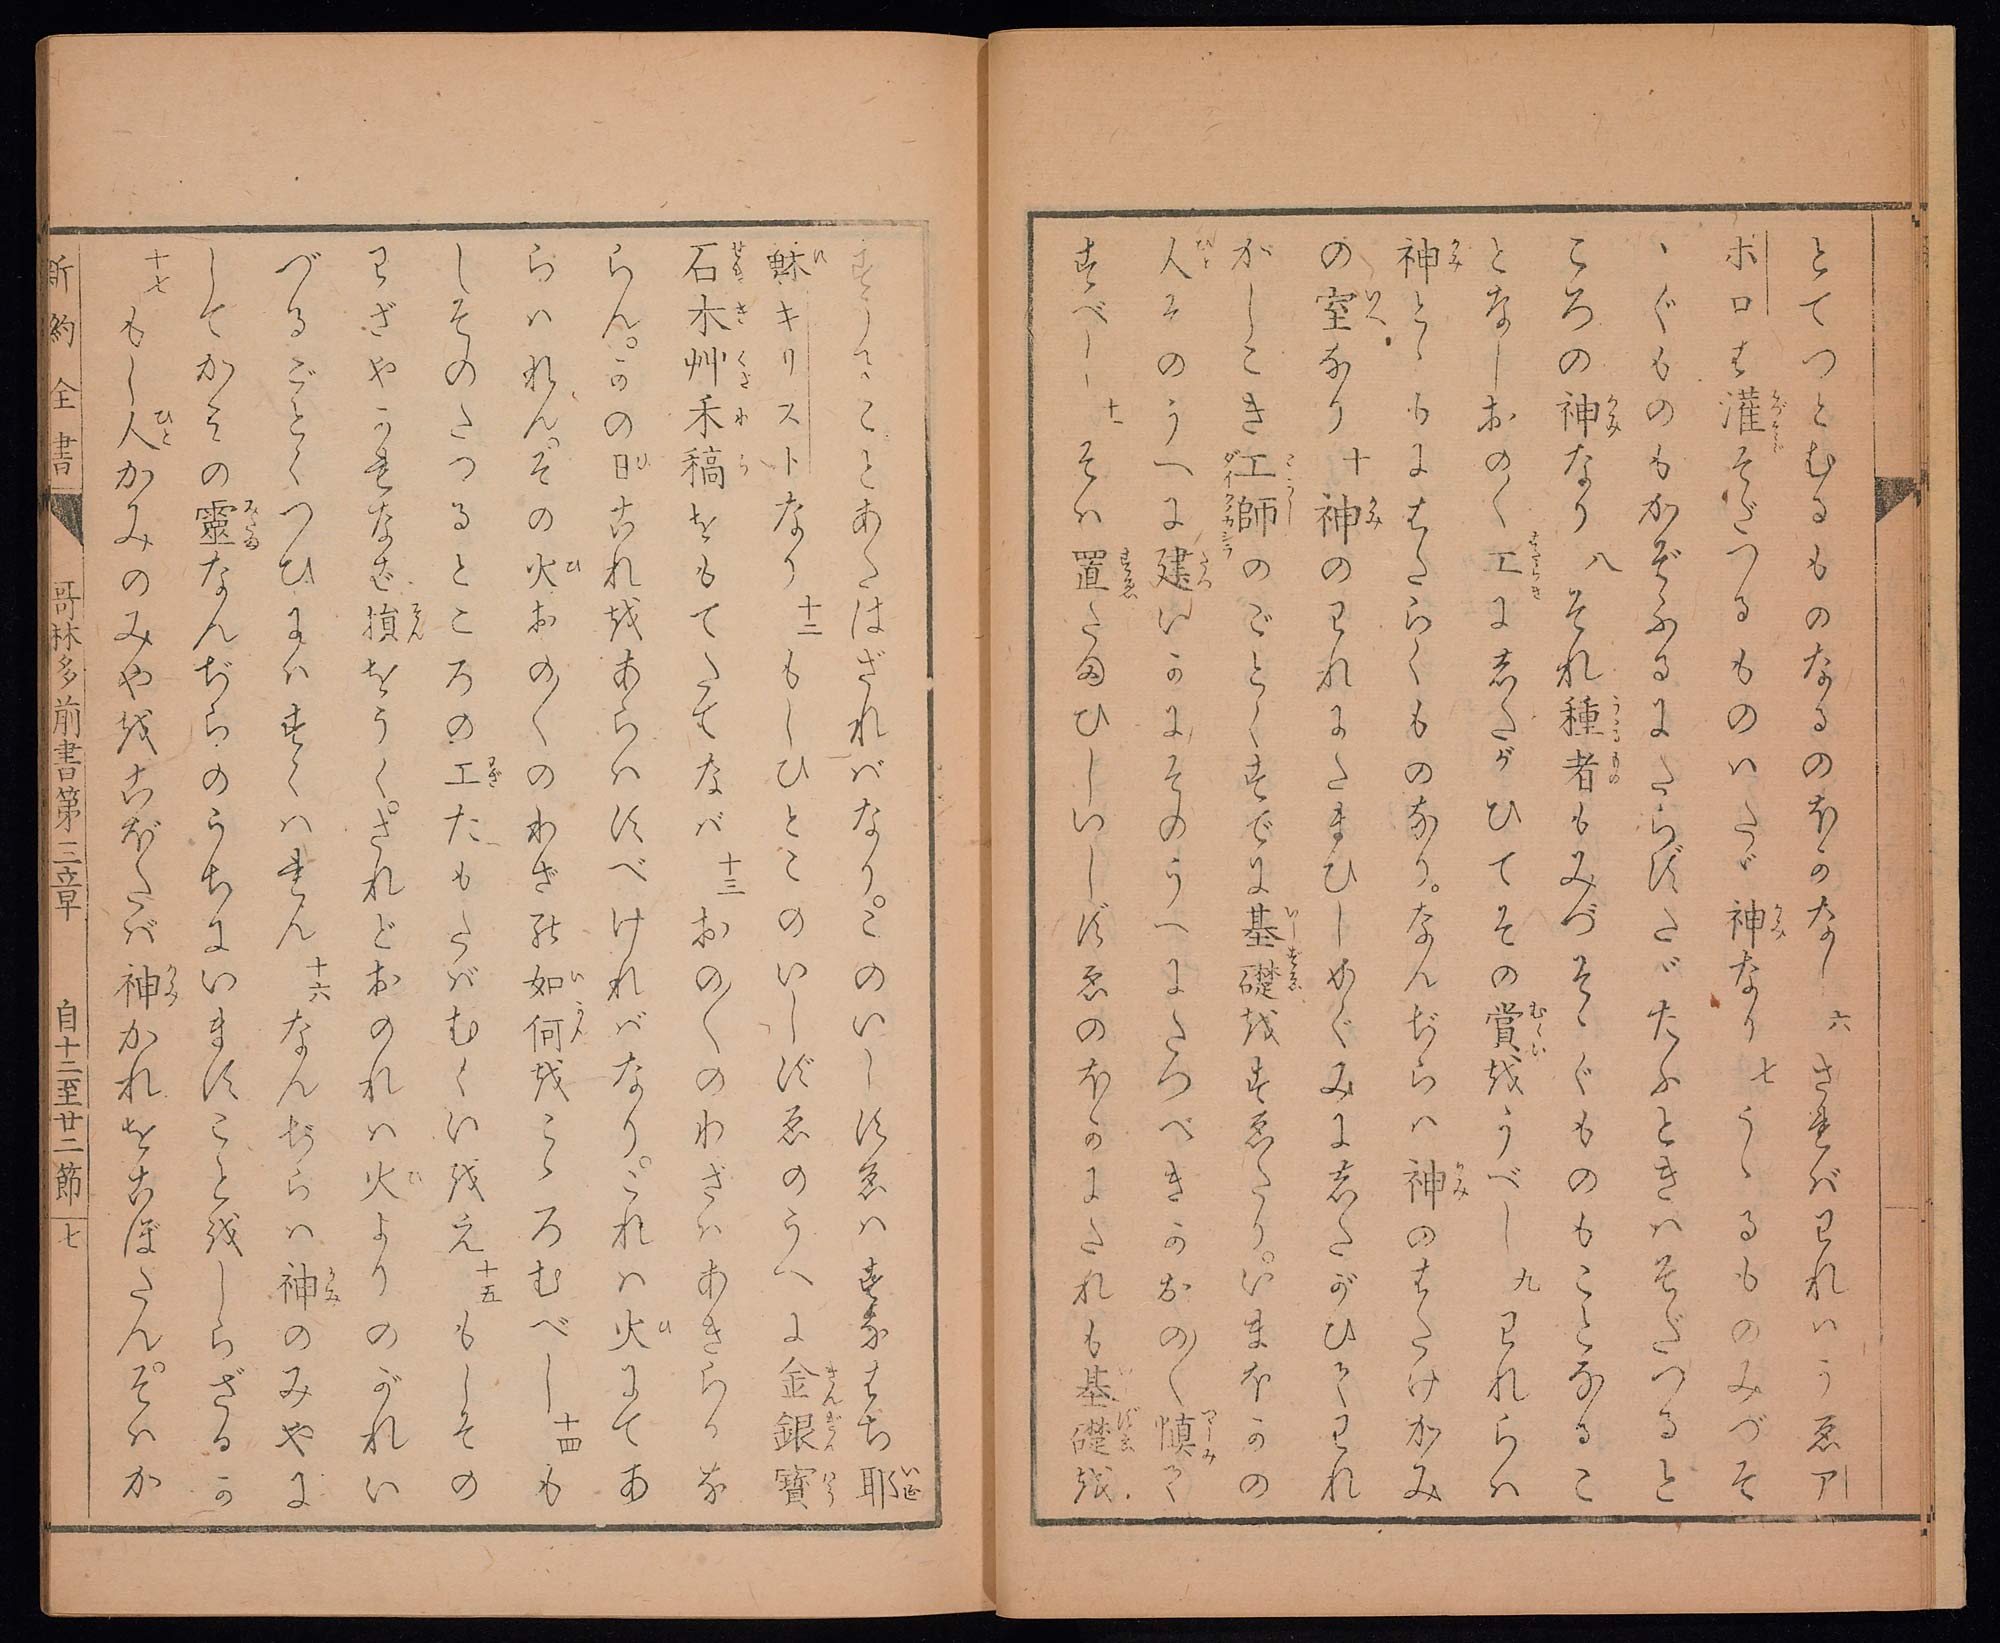 とてつとむるものなるのみのなし 六 さればわれハうゑア
ポロは灌そだつるものハたゞ神なり 七 うゝるものみづそ
ゝぐものもかぞふるにたらずたゞたふときハそだつると
ころの神なり 八 それ種者もみづそゝぐものもことなるこ
となしおの〱工にしたがひてその賞をうべし 九 われらハ
神とゝもにはたらくものなり。なんぢらハ神のはたけかみ
の室なり 十 神のわれにたまひしめぐみにしたがひてわれ
かしこき工師のごとくすでに基礎をすゑたり。いまほかの
人そのうへに建いかにそのうへにたつべきかおの〱慎て
すべし 十一 そハ置たまひしいしずゑのほかにたれも基礎を
すうることあたはざればなり。このいしずゑハすなはち耶
穌キリストなり 十二 もしひとこのいしずゑのうへに金銀寶
石木艸禾稿をもてたてなバ 十三 おの〱のわざハあきらかな
らん。かの日これをあらハすべければなり。これハ火にてあ
らハれん。その火おの〱のわざの如何をこゝろむべし 十四 も
しそのたつるところの工たもたバむくいをえ 十五 もしその
わざやかれなば損をうく。されどおのれハ火よりのがれい
づるごとくつひにハすくはれん 十六 なんぢらハ神のみやに
してかみの靈なんぢらのうちにいますことをしらざるか
十七 もし人かみのみやをこぼたバ神かれをこぼたん。そハか
新約全書 哥林多前書第三章 自十二至廿二節 七